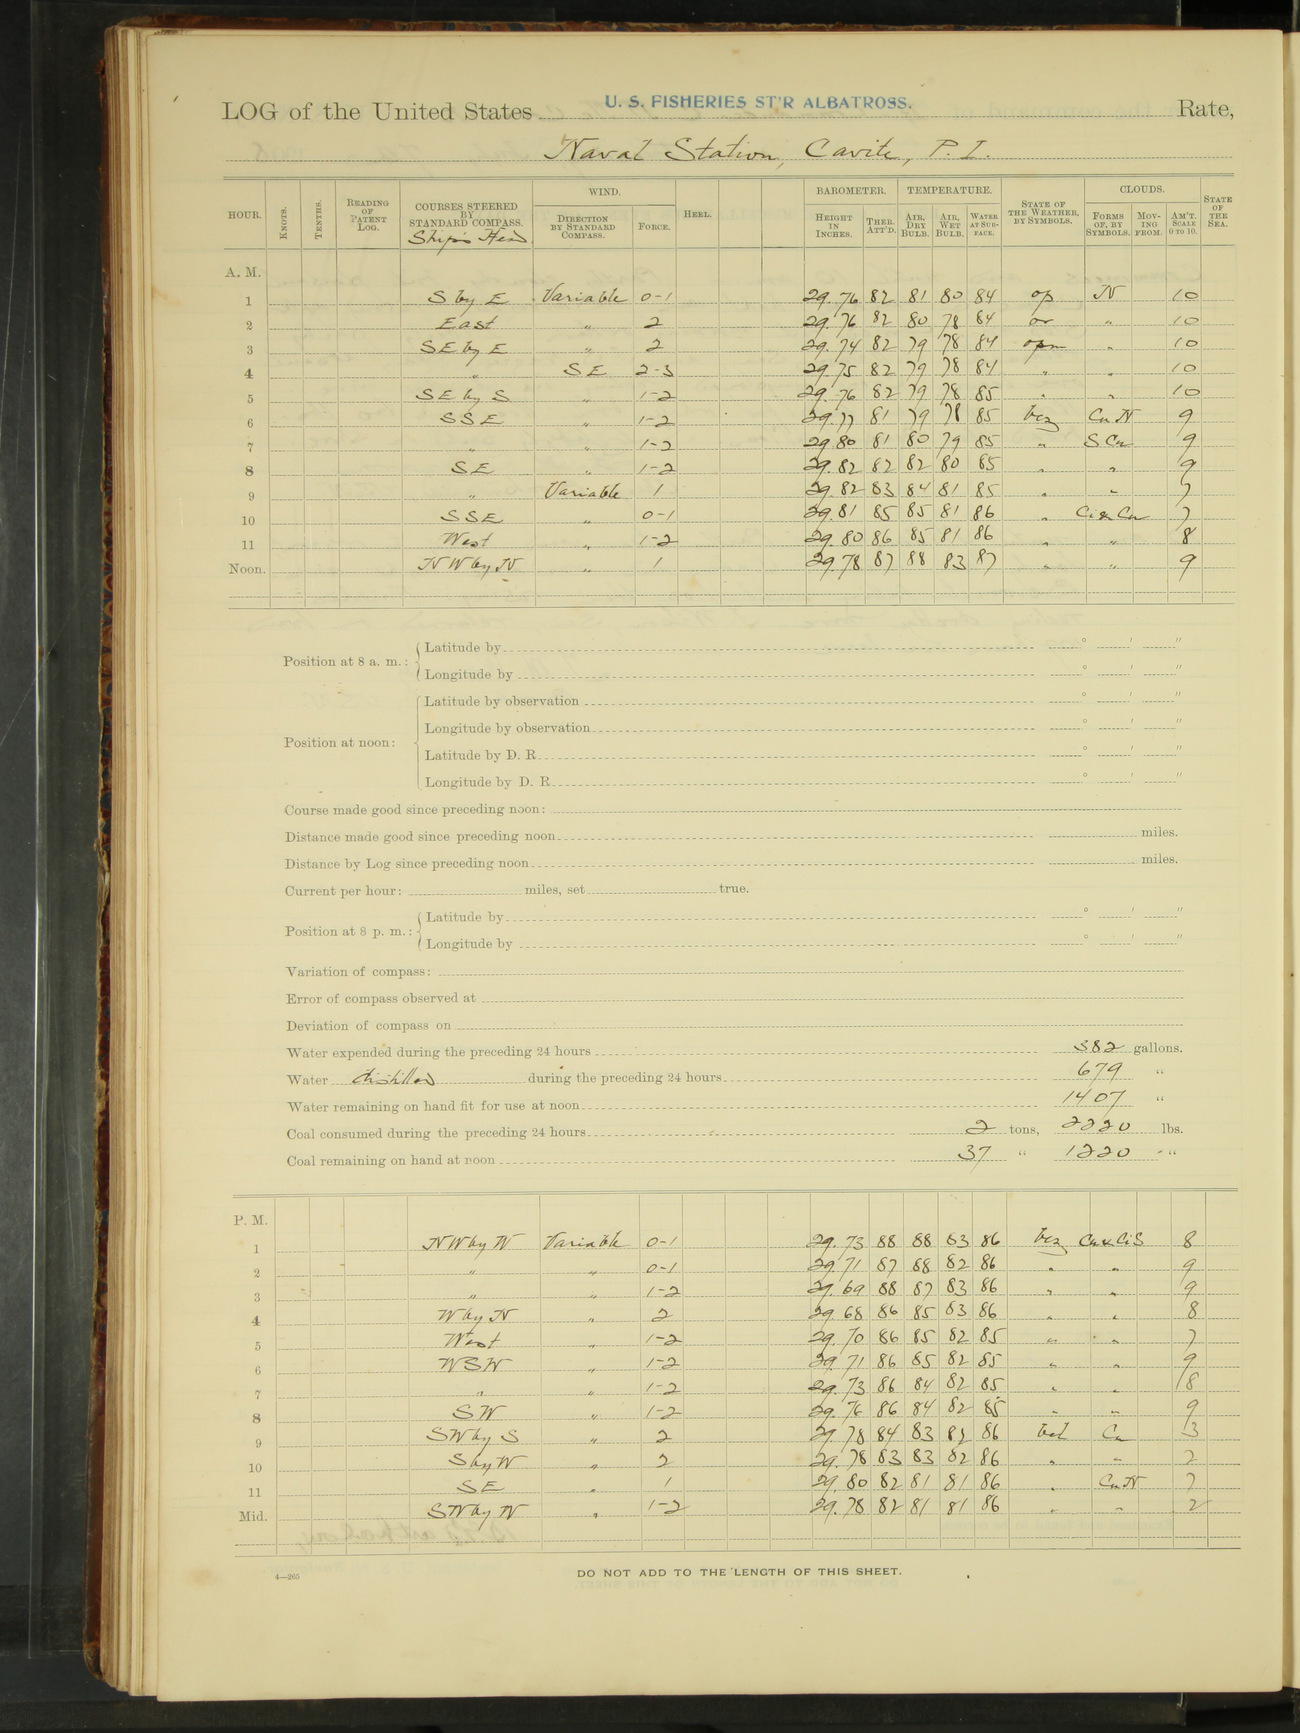 LOG of the United States U. S. FISHERIES ST'R ALBATROSS. Rate,
Naval Station, Cavite, P. I.
HOUR. KNOTS. TENTHS. READING OF PATENT LOG. COURSES STEERED BY STANDARD COMPASS. Ship's Head WIND. DIRECTION BY STANDARD COMPASS. FORCE. HEEL. BAROMETER. HEIGHT IN INCHES. THER. ATT'D. TEMPERATURE. AIR, DRY BULB. AIR, WET BULB. WATER AT SURFACE. STATE OF THE WEATHER, BY SYMBOLS. CLOUDS. FORMS OF, BY SYMBOLS. MOVING FROM. AM'T. SCALE 0 TO 10. STATE OF THE SEA.
A. M.
1 S by E Variable 0-1 29.76 82 81 80 84 op N 10
2 East " 2 29.76 82 80 78 84 or " 10
3 SE by E " 2 29.74 82 79 78 84 " 10
4 " SE 2-3 29.75 82 79 78 84 " " 10
5 SE by S " 1-2 29.76 82 79 78 85 " " 10
6 SSE " 1-2 29.77 81 79 78 85 bcz Cu N 9
7 " " 1-2 29.80 81 80 79 85 " S Cu 9
8 SE " 1-2 29.82 82 82 80 85 " " 9
9 " Variable 1 29.82 83 84 81 85 " " 7
10 SSE " 0-1 29.81 85 85 81 86 " Ci & Cu 7
11 West " 1-2 29.80 86 85 81 86 " " 8
Noon. NW by N " 1 29.78 87 88 83 87 " " 9
Position at 8 a. m.: Latitude by ° ' "
Longitude by ° ' "
Position at noon: Latitude by observation ° ' "
Longitude by observation ° ' "
Latitude by D. R. ° ' "
Longitude by D. R. ° ' "
Course made good since preceding noon:
Distance made good since preceding noon miles.
Distance by Log since preceding noon miles.
Current per hour: miles, set true.
Position at 8 p. m.: Latitude by ° ' "
Longitude by ° ' "
Variation of compass:
Error of compass observed at
Deviation of compass on
Water expended during the preceding 24 hours 382 gallons.
Water distilled during the preceding 24 hours 679 "
Water remaining on hand fit for use at noon 1407 "
Coal consumed during the preceding 24 hours 2 tons, 2220 lbs.
Coal remaining on hand at noon 37 " 1220 "
P. M.
1 NW by W Variable 0-1 29.73 88 88 83 86 bcz Cu & Ci S 8
2 " " 0-1 29.71 87 88 82 86 " " 9
3 " " 1-2 29.69 88 87 83 86 " " 9
4 W by N " 2 29.68 86 85 83 86 " " 8
5 West " 1-2 29.70 86 85 82 85 " " 7
6 WSW " 1-2 29.71 86 85 82 85 " " 9
7 " " 1-2 29.73 86 84 82 85 " " 8
8 SW " 1-2 29.76 86 84 82 85 " " 9
9 SW by S " 2 29.78 84 83 82 86 Cu 3
10 S by W " 2 29.78 83 83 82 86 " " 2
11 SE " 1 29.80 82 81 81 86 " Cu N 7
Mid. SW by W " 1-2 29.78 82 81 81 86 " " 2
4—265
DO NOT ADD TO THE LENGTH OF THIS SHEET.